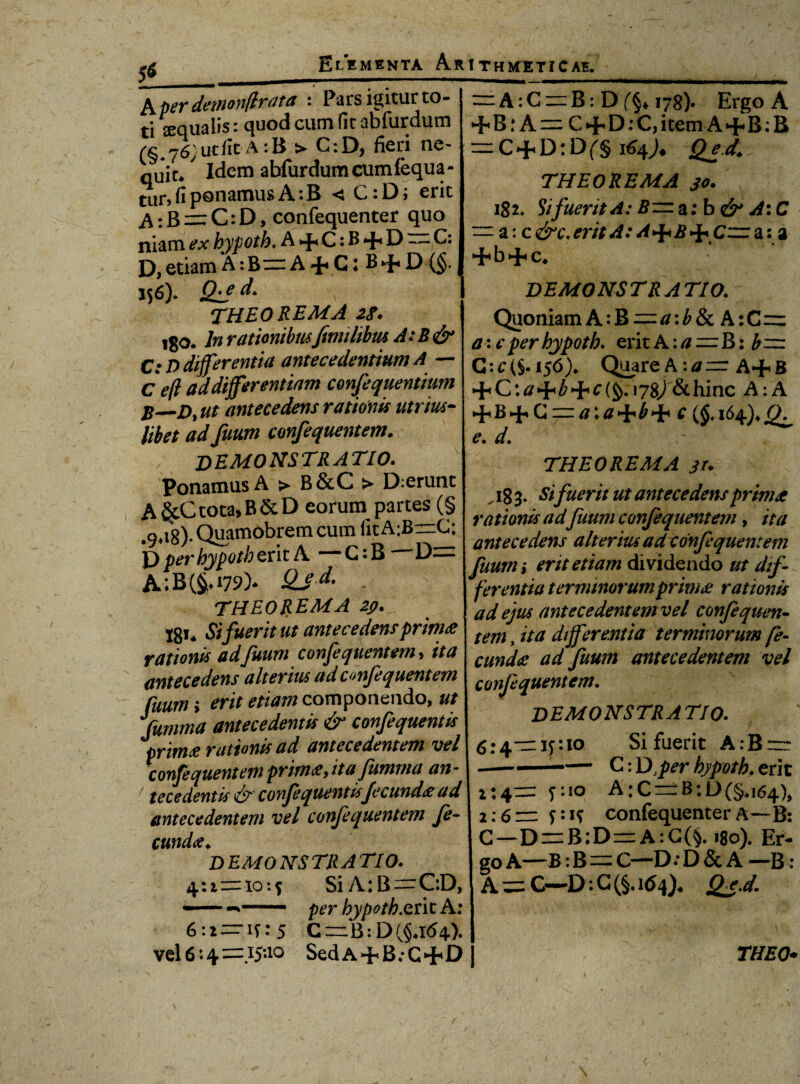 56
ELEMENTA ARITHMETICAE.
A per demonſtrata : Pars igitur to-
ti æqualis: quod cum ſit abſurdum
(§. 76) ut ſit A : B > C:D, fieri ne-
quit. Idem abſurdum cum ſequa-
tur, ſi ponamus A:B < C:D; erit
A:B = C:D, conſequenter quo
niam ex hypoth. A + C : B + D = C:
D, etiam A : B = A + C : B + D (§.
156). Q.e d.
THEOREMA 28.
180. In rationibus ſimilibus A:B &
C: D differentia antecedentium A —
C eſt ad differentiam conſequentium
B—D, ut antecedens rationis utrius-
libet ad ſuum conſequentem.
DEMONSTRATIO.
Ponamus A > B & C > D: erunt
A & C tota, B & D eorum partes (§
.9,18). Quamobrem cum ſit A:B=C:
D per hypoth erit A — C : B — D =
A:B (§.179). Q.e d.
THEOREMA 29.
181. Si fuerit ut antecedens primæ
rationis ad ſuum conſequentem, ita
antecedens alterius ad conſequentem
ſuum; erit etiam componendo, ut
ſumma antecedentis & conſequentis
primæ rationis ad antecedentem vel
conſequentem primæ, ita ſumma an-
tecedentis & conſequentis ſecundæ ad
antecedentem vel conſequentem ſe-
cundæ.
DEMONSTRATIO.
4:2=10:5 Si A:B=C:D,
per hypoth. erit A:
6:2=15:5 C=B:D (§.164).
vel 6:4=15:10 Sed A+B:C+D
= A:C=B:D (§. 178). Ergo A
+B:A = C+D:C, item A+B:B
= C+D:D (§ 164). Q.e.d.
THEOREMA 30.
182. Si fuerit A: B = a: b & A: C
= a: c &c. erit A: A+B+C = a: a
+b+c.
DEMONSTRATIO.
Quoniam A:B = a:b & A:C =
a:c per hypoth. erit A:a = B: b =
C:c (§. 156). Quare A:a = A+B
+C:a+b+c (§. 178) & hinc A:A
+B+C = a:a+b+c (§.164). Q.
e. d.
THEOREMA 31.
183. Si fuerit ut antecedens primæ
rationis ad ſuum conſequentem, ita
antecedens alterius ad conſequentem
ſuum; erit etiam dividendo ut dif-
ferentia terminorum primæ rationis
ad ejus antecedentem vel conſequen-
tem, ita differentia terminorum ſe-
cundæ ad ſuum antecedentem vel
conſequentem.
DEMONSTRATIO.
6:4=15:10 Si fuerit A:B =
C:D, per hypoth. erit
2:4= 5:10 A:C=B:D (§.164),
2:6= 5:15 conſequenter A—B:
C—D=B:D=A:C (§. 180). Er-
go A—B:B=C—D:D & A—B:
A=C—D:C (§.164). Q.e.d.
THEO-